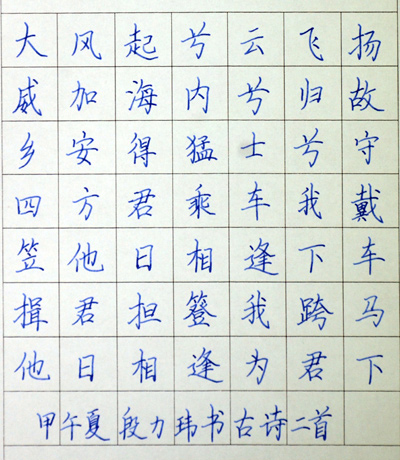 大风起兮云飞扬
威加海内兮归故
乡安得猛士兮守
四方君乘车我戴
笠他日相逢下车
揖君担簦我跨马
他日相逢为君下
甲午夏段力玮书古诗二首